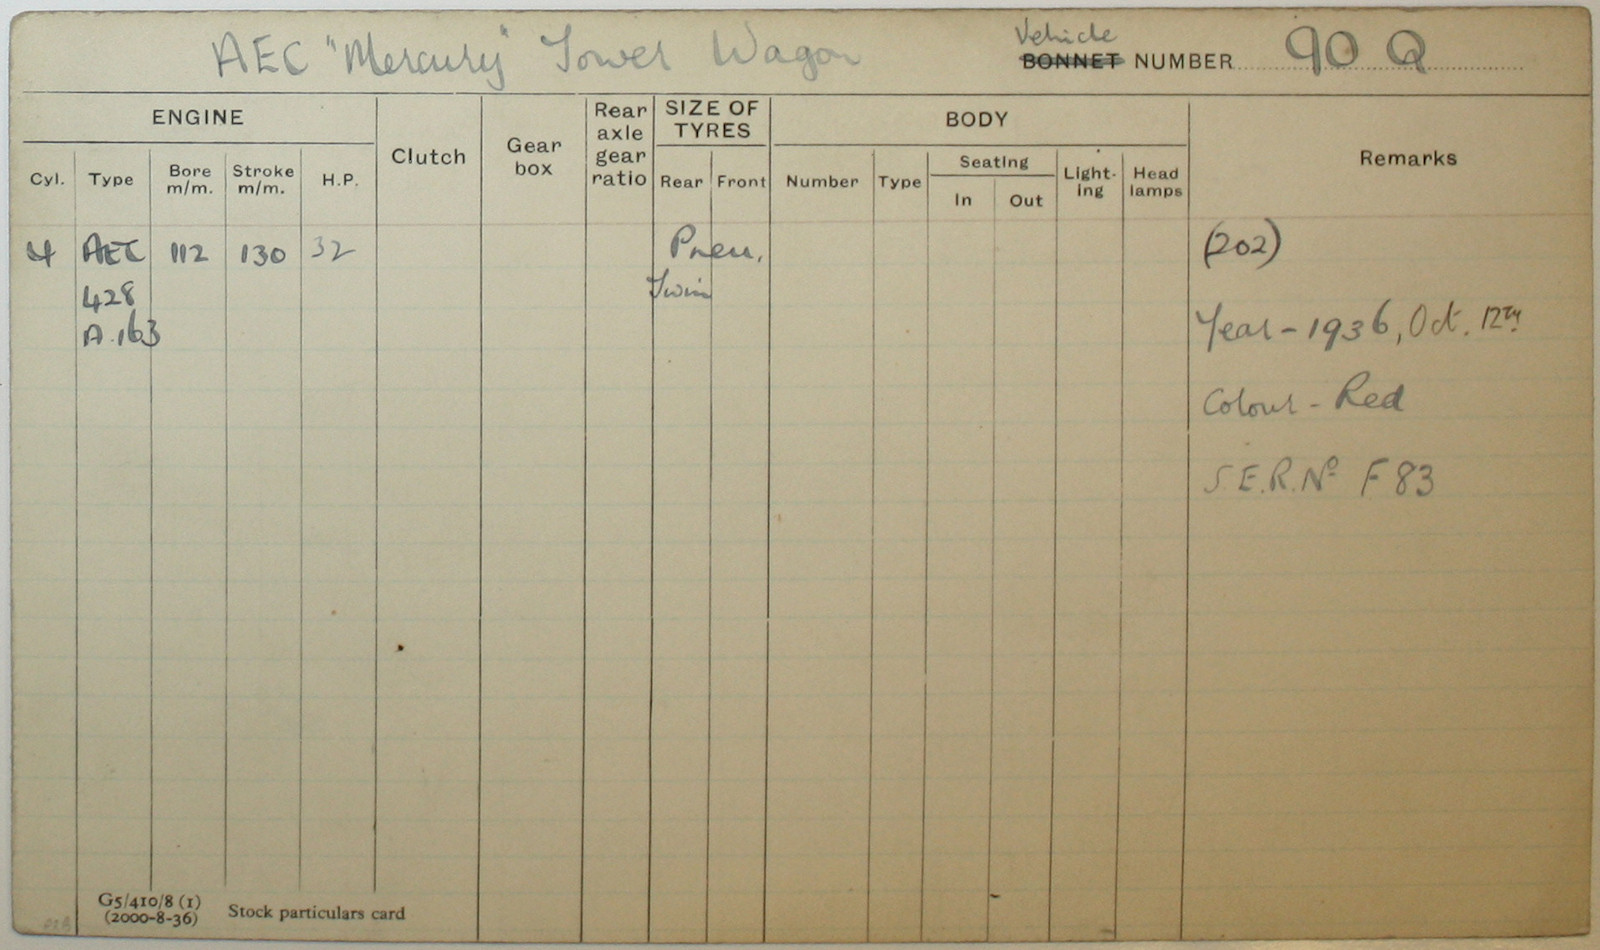 AEC "Mercury" Tower Wagon
Vehicle
BONNET NUMBER 90 Q
ENGINE
Cyl.
Type
Bore m/m.
Stroke m/m.
H.P.
Clutch
Gear box
Rear axle gear ratio
SIZE OF TYRES
Rear
Front
BODY
Number
Type
Seating
In
Out
Light-ing
Head lamps
Remarks
4 AEC 112 130 32 Pneu. (202)
428 Twin
A.163 Year - 1936, Oct. 12TH
Colour - Red
S.E.R. Nº F 83
G5/410/8 (1)
(2000-8-36) Stock particulars card